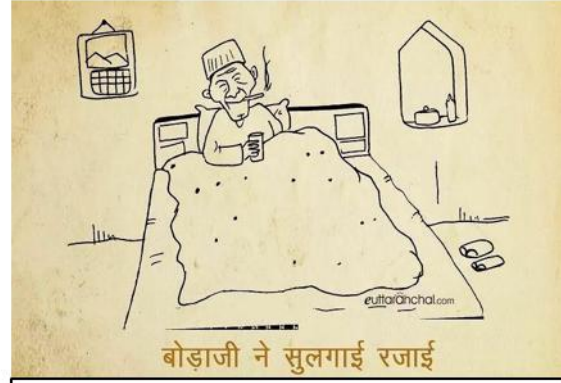 euttaranchal.com
बोड़ाजी ने सुलगाई रजाई